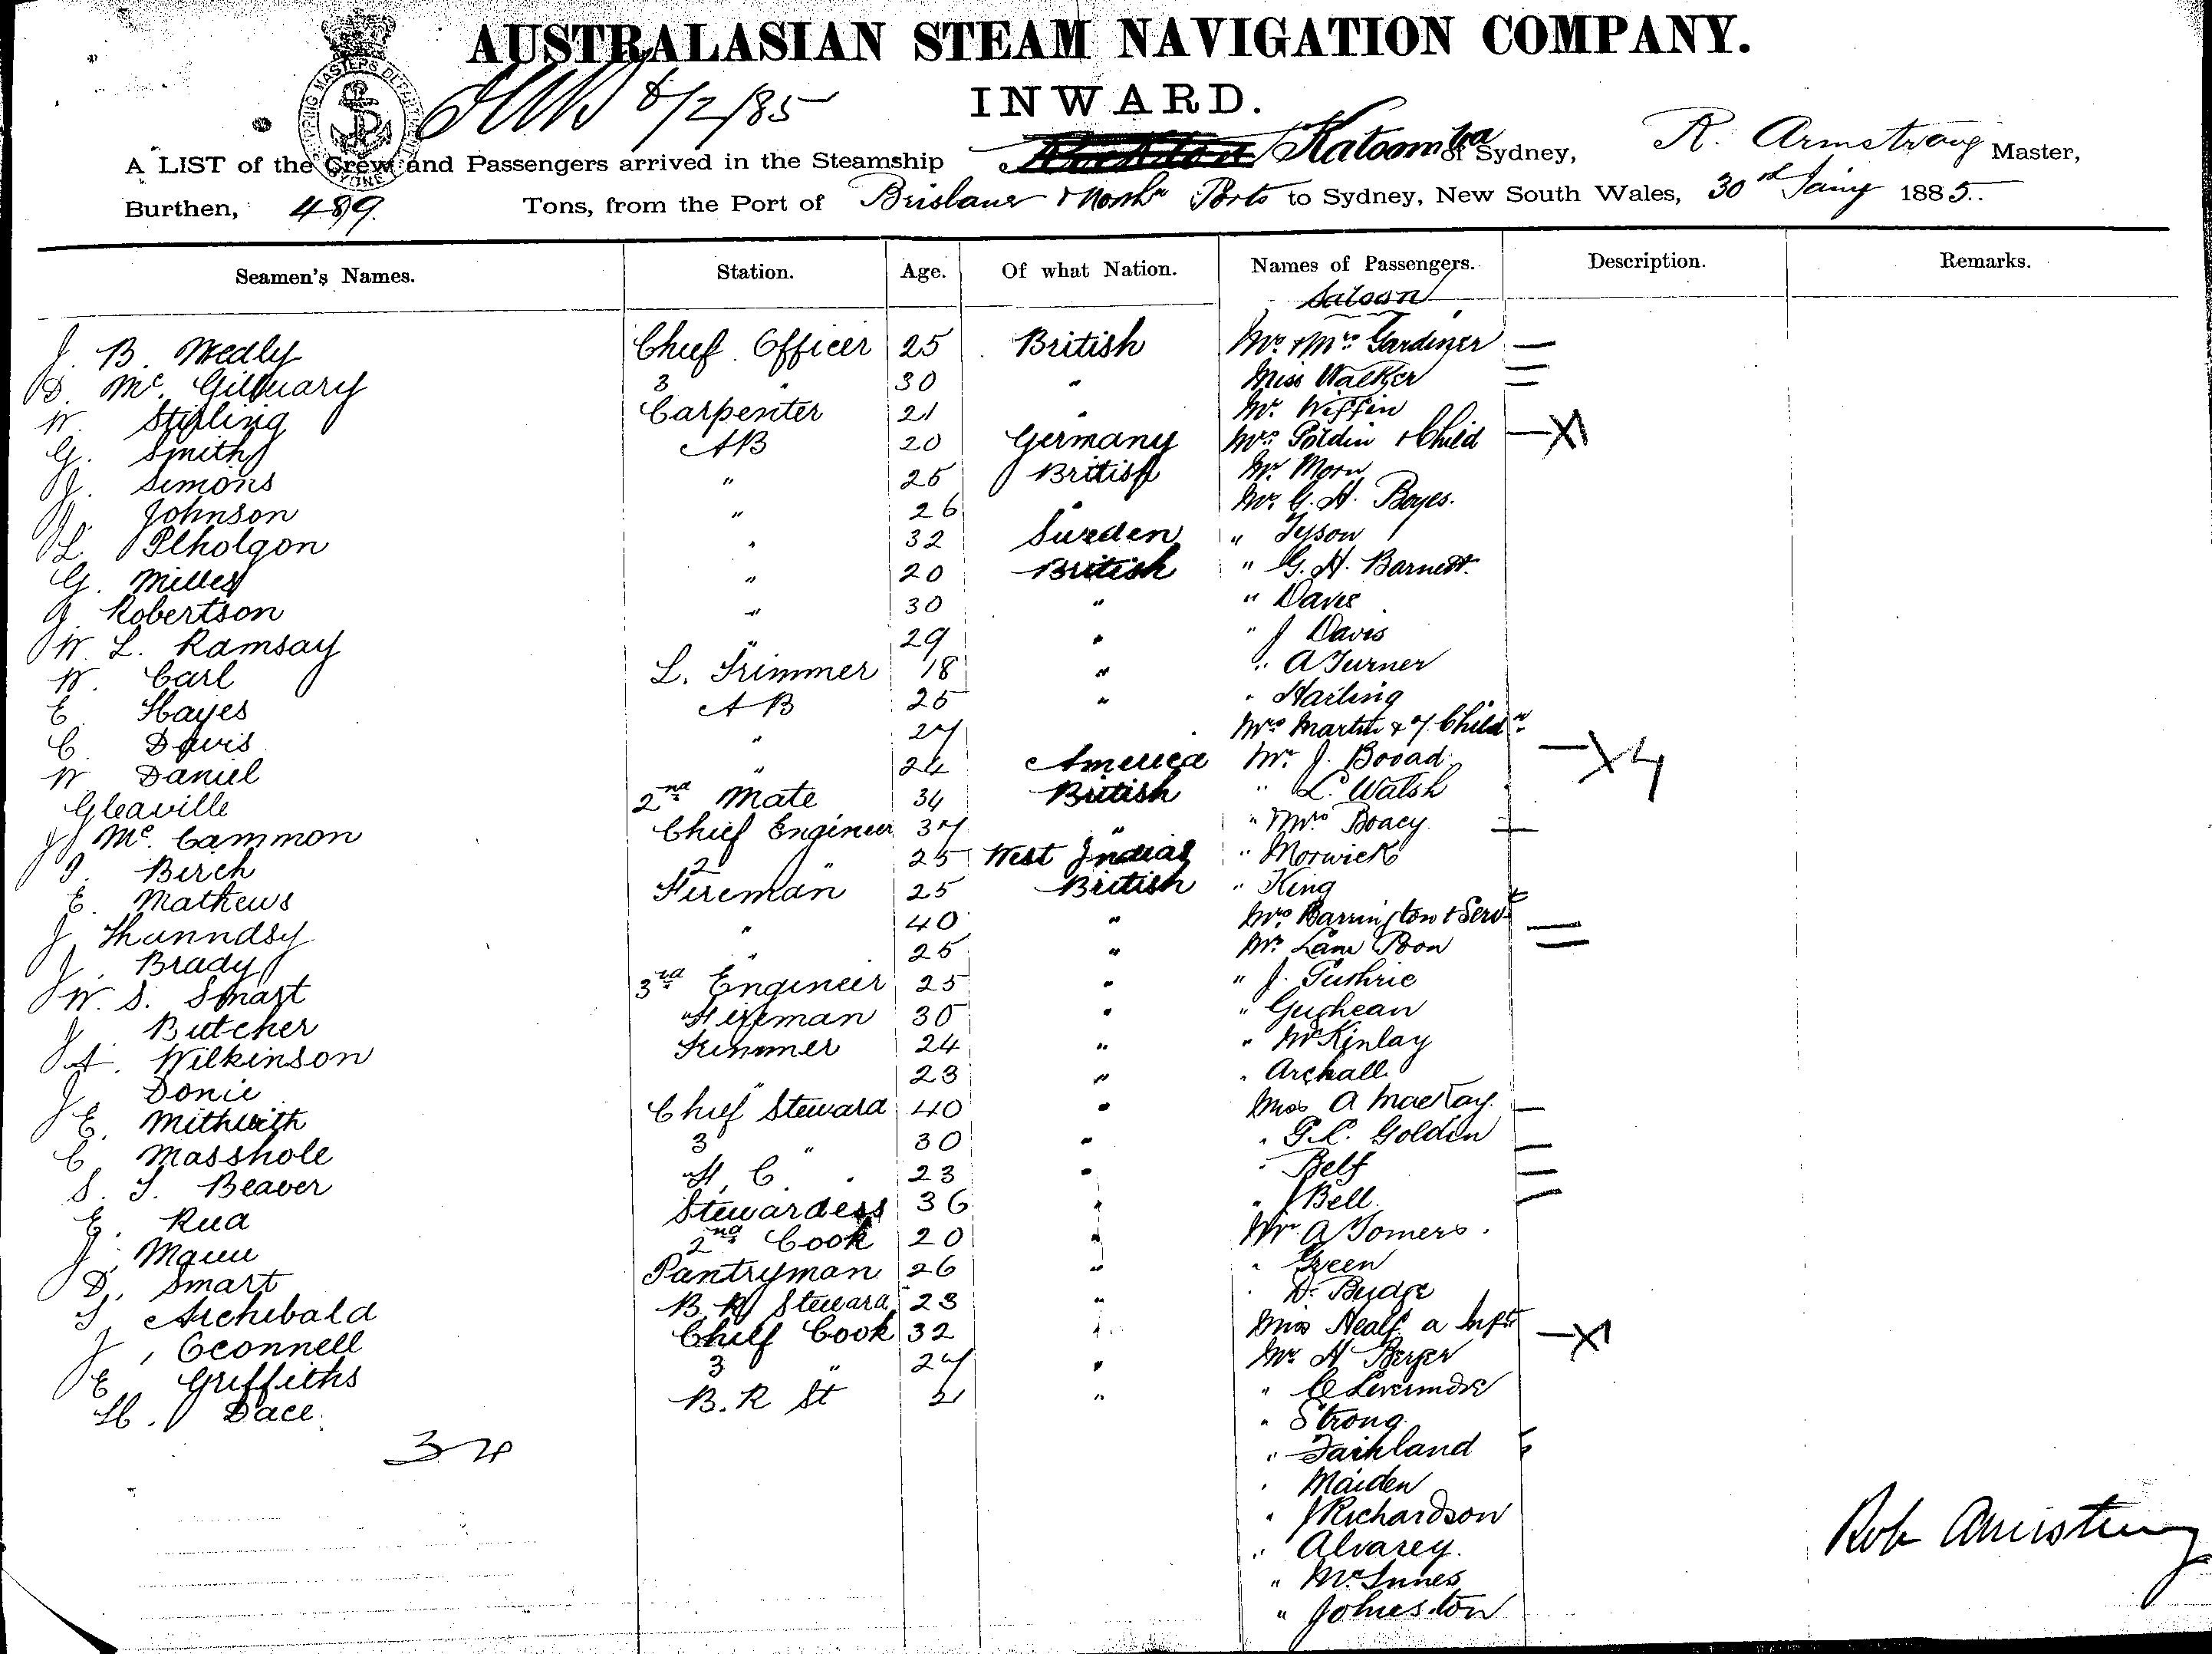 AUSTRALASIAN STEAM NAVIGATION COMPANY.
8/2/85
INWARD.
A LIST of the Crew and Passengers arrived in the Steamship Katoomba of Sydney, R. Armstrong Master,
Burthen, 489. Tons, from the Port of Brisbane & Northn Ports to Sydney, New South Wales, 30 Jany 1885.
Seamen's Names. Station. Age. Of what Nation. Names of Passengers. Description. Remarks.
Saloon
J. B. Medly Chief Officer 25 British Mr & Mrs Gardiner —
D. Mc. Gilvuary 3 " 30 " Miss Walker
W. Stirling Carpenter 21 " Mr. Wiffin
G. Smith AB 20 Germany Mrs Poldin & Child —X1
J. Simons " 25 British Mr. Morn
J. Johnson " 26 " Mr. G. H. Boyes.
L. Plholgon " 32 Sweden " Tyson
G. Milles " 20 British " G. H. Barnett.
J. Robertson " 30 " " Davis
W. L. Ramsay " 29 " " J Davis
W. Carl L. Trimmer 18 " " A Turner
E. Hayes AB 25 " " Harling
C. Davis " 27 " Mrs Martin & 7 Childn
W Daniel " 24 America Mr. J. Booad —X4
Gleaville 2nd Mate 34 British " L. Walsh
J Mc. Cammon Chief Engineer 37 " " Mrs Boacy
J. Birch 2 " 25 West Indias " Morwick
E. Mathews Fireman 25 British " King
J Thunndsy " 40 " Mrs Barrington & Servt
J. Brady " 25 " Mr. Lam Poon
W. S. Smart 3rd Engineer 25 " " J. Guthrie
J Butcher Fireman 30 " " Gughean
A. Wilkinson Trimmer 24 " " McKinlay
J. Donie " 23 " " Archall
E. Mithwith Chief Steward 40 " Miss A MacKay
C. Masshole 3 " 30 " " G.C. Goldin
S. J. Beaver H. C. " 23 " " Belf
E. Rua Stewardess 36 " " J Bell
J. Maun 2nd Cook 20 " Mr A Tomers.
D. Smart Pantryman 26 " " Green
J. Archibald B. R Steward 23 " " D. Budge
J, Oconnell Chief Cook 32 " Miss Nealf a Inft —X1
E, Griffiths 3 " 27 " Mr. H Berger
H. Dace B. R St 21 " " C Livermore
" Strong
34 " Fairland
" Maiden
" J Richardson
" Alvarey.
" McInnes
" Johnston
Rob Armstrong